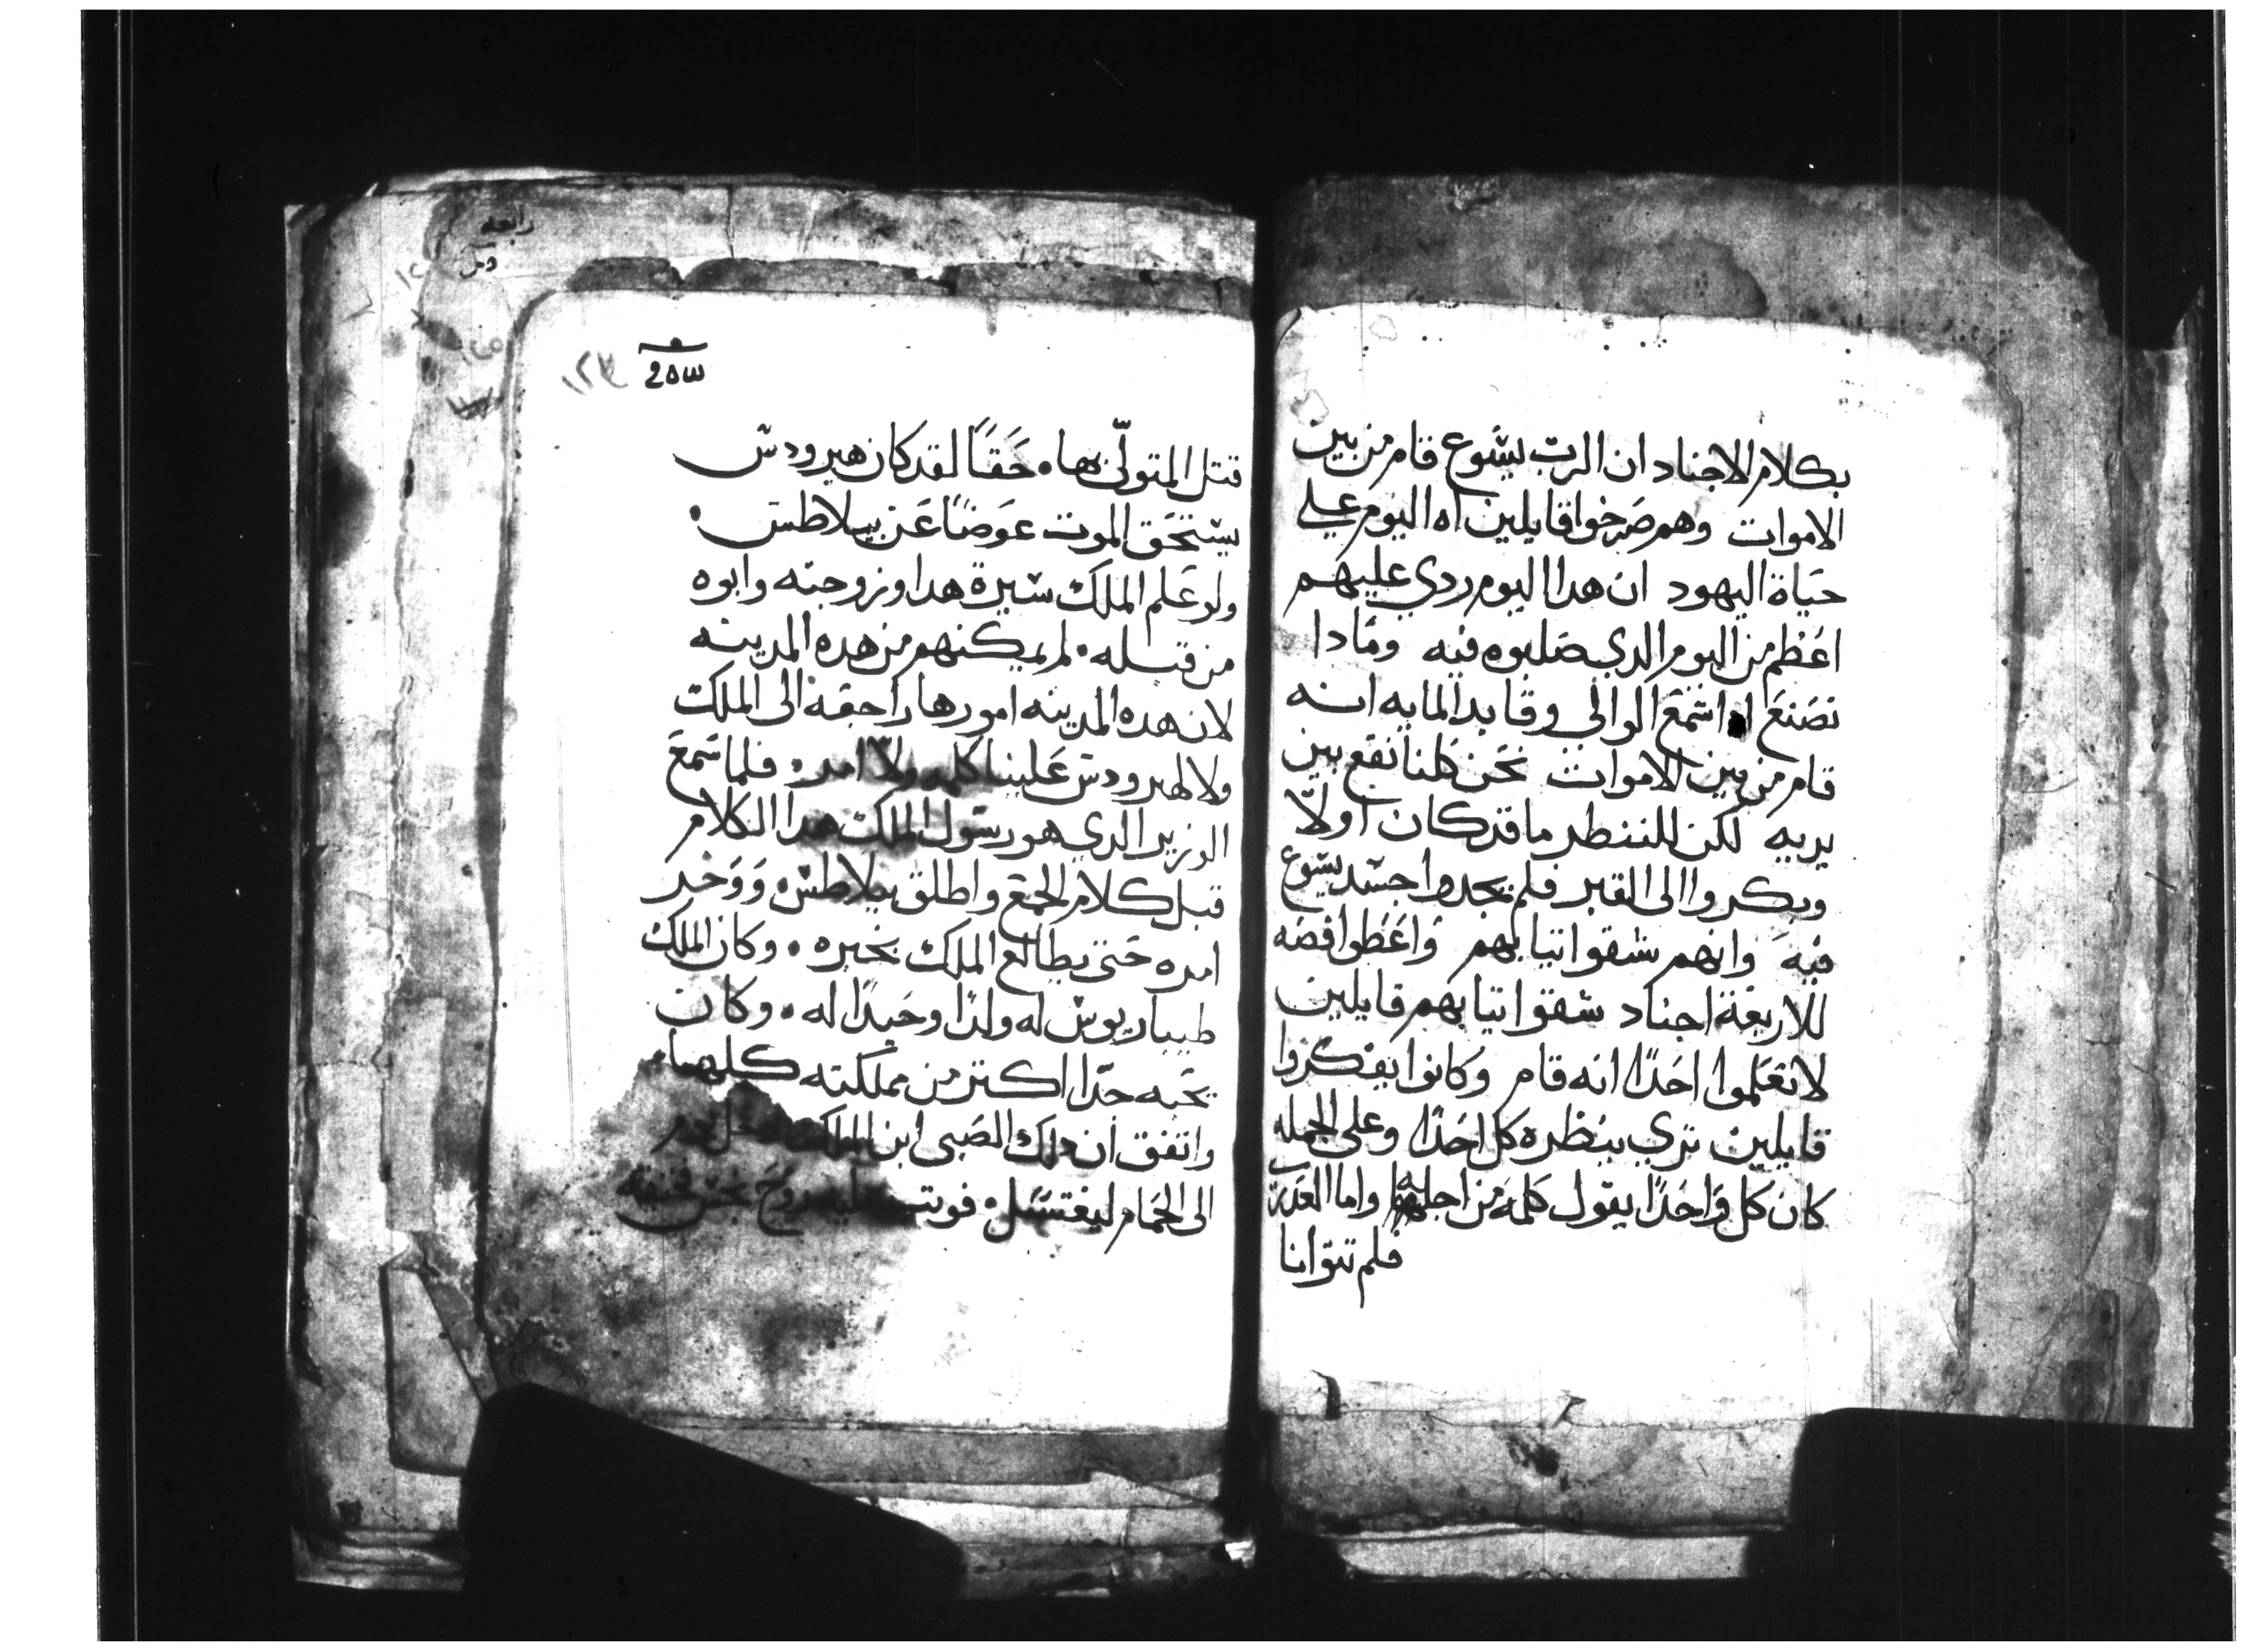 بكلام الاجناد ان الرب يسوع قام من بين
الاموات وهم صرخوا قايلين اه اليوم علي
حياة اليهود ان هدا اليوم ردي عليهم
اعظم من اليوم الدي صلبوه فيه ومادا
نصنع اسمع الوالي وقايد المايه انه
قام من بين الاموات نحن كلنا نقع بين
يديه لكن للننطر ما قد كان اولاً
وبكروا الى القبر فلم يجدوا جسد يسوع
فيه وانهم شقوا تيابهم واعطوا فضه
للاربعة اجناد شقوا تيابهم قايلين
لا تعلموا احدًا انه قام وكانوا يفكروا
قايلين ترى ينظره كل احدًا وعلى الجمله
كان كل واحدًا يقول كلمه من اجله واما العدرى
فلم تتوانا
رابعه
١٢٣
قتل المتولّى بها حَقًا لقد كان هيرودس
يستحق الموت عوضًا عن بيلاطس
ولو علم الملك سيرة هدا وزوجته وابوه
من قتله لم يمكنهم من هده المدينه
لان هده المدينه امورها راجعه الى الملك
ولا لهيرودس علينا كلمه ولا امر فلما سمع
الوزير الدي هو رسول الملك هدا الكلام
قبل كلام الجمع واطلق بيلاطس ووخر
امره حتى يطالع الملك بخبره وكان الملك
طيباريوس له ولدًا وحيدًا له وكان
يحبه جدًا اكتر من مملكته كلها
واتفق ان دلك الصبى ابن الملك دخل يوم
الى الحمام ليغتسل فوتب عليه روح نجس فخنقه